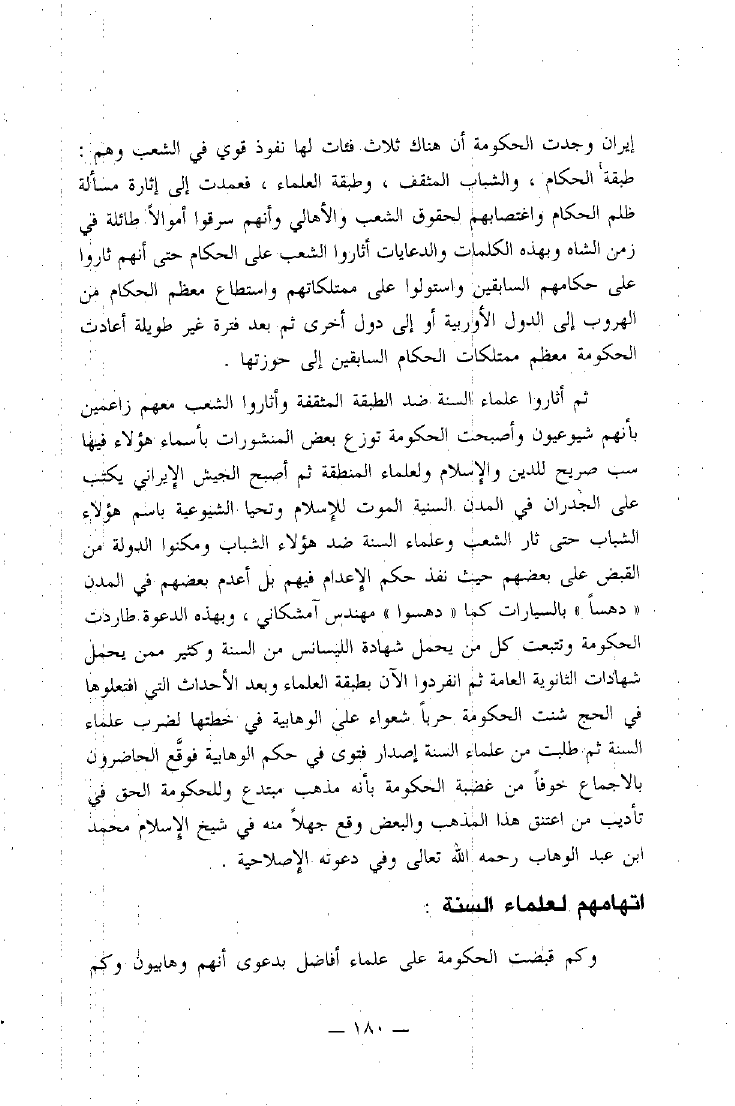 إيران وجدت الحكومة أن هناك ثلاث فئات لها نفوذ قوي في الشعب وهم :
طبقة الحكام ، والشباب المثقف ، وطبقة العلماء ، فعمدت إلى إثارة مسألة
ظلم الحكام واغتصابهم لحقوق الشعب والأهالي وأنهم سرقوا أموالاً طائلة في
زمن الشاه وبهذه الكلمات والدعايات أثاروا الشعب على الحكام حتى أنهم ثاروا
على حكامهم السابقين واستولوا على ممتلكاتهم واستطاع معظم الحكام من
الهروب إلى الدول الأوربية أو إلى دول أخرى ثم بعد فترة غير طويلة أعادت
الحكومة معظم ممتلكات الحكام السابقين إلى حوزتها .
ثم أثاروا علماء السنة ضد الطبقة المثقفة وأثاروا الشعب معهم زاعمين
بأنهم شيوعيون وأصبحت الحكومة توزع بعض المنشورات بأسماء هؤلاء فيها
سب صريح للدين والإسلام ولعلماء المنطقة ثم أصبح الجيش الإيراني يكتب
على الجدران في المدن السنية الموت للإسلام وتحيا الشيوعية باسم هؤلاء
الشباب حتى ثار الشعب وعلماء السنة ضد هؤلاء الشباب ومكنوا الدولة من
القبض على بعضهم حيث نفذ حكم الإعدام فيهم بل أعدم بعضهم في المدن
« دهساً » بالسيارات كما « دهسوا » مهندس آمشكاني ، وبهذه الدعوة طاردت
الحكومة وتتبعت كل من يحمل شهادة الليسانس من السنة وكثير ممن يحمل
شهادات الثانوية العامة ثم انفردوا الآن بطبقة العلماء وبعد الأحداث التي افتعلوها
في الحج شنت الحكومة حرباً شعواء على الوهابية في خطتها لضرب علماء
السنة ثم طلبت من علماء السنة إصدار فتوى في حكم الوهابية فوقَّع الحاضرون
بالاجماع خوفاً من غضبة الحكومة بأنه مذهب مبتدع وللحكومة الحق في
تأديب من اعتنق هذا المذهب والبعض وقع جهلاً منه في شيخ الإسلام محمد
ابن عبد الوهاب رحمه الله تعالى وفي دعوته الإصلاحية .
اتهامهم لعلماء السنة :
وكم قبضت الحكومة على علماء أفاضل بدعوى أنهم وهابيون وكم
— ١٨٠ —